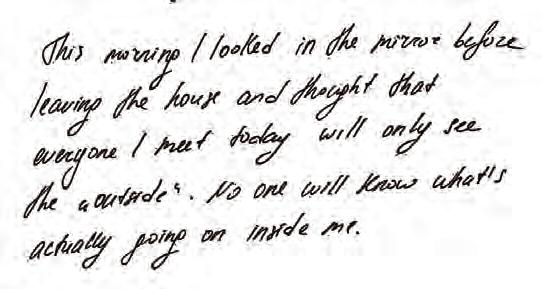 This morning I looked in the mirror before
leaving the house and thought that
everyone I meet today will only see
the „outside“. No one will know what's
actually going on inside me.